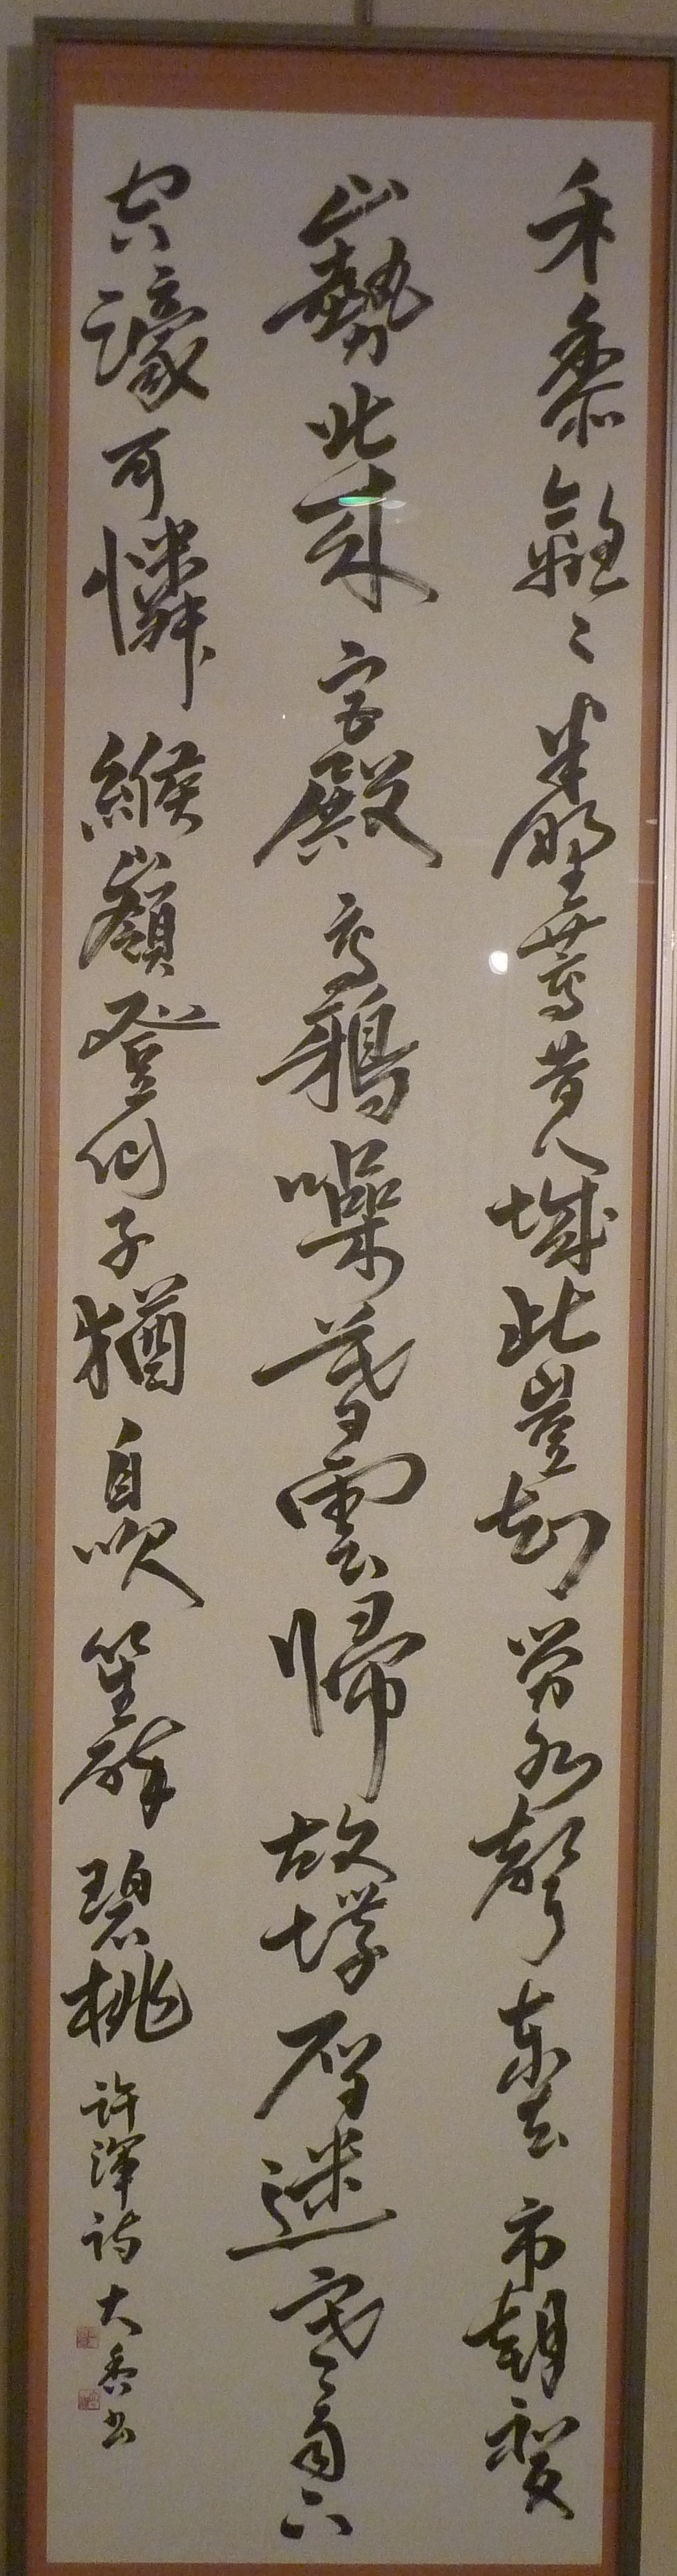 禾黍離〻半野蒿昔人城此豈知勞水聲東去市朝變
山勢北來宮殿高鴉噪暮雲歸故堞雁迷寒雨下
空濠可憐緱嶺登仙子猶自吹笙醉碧桃 許渾詩 大香書